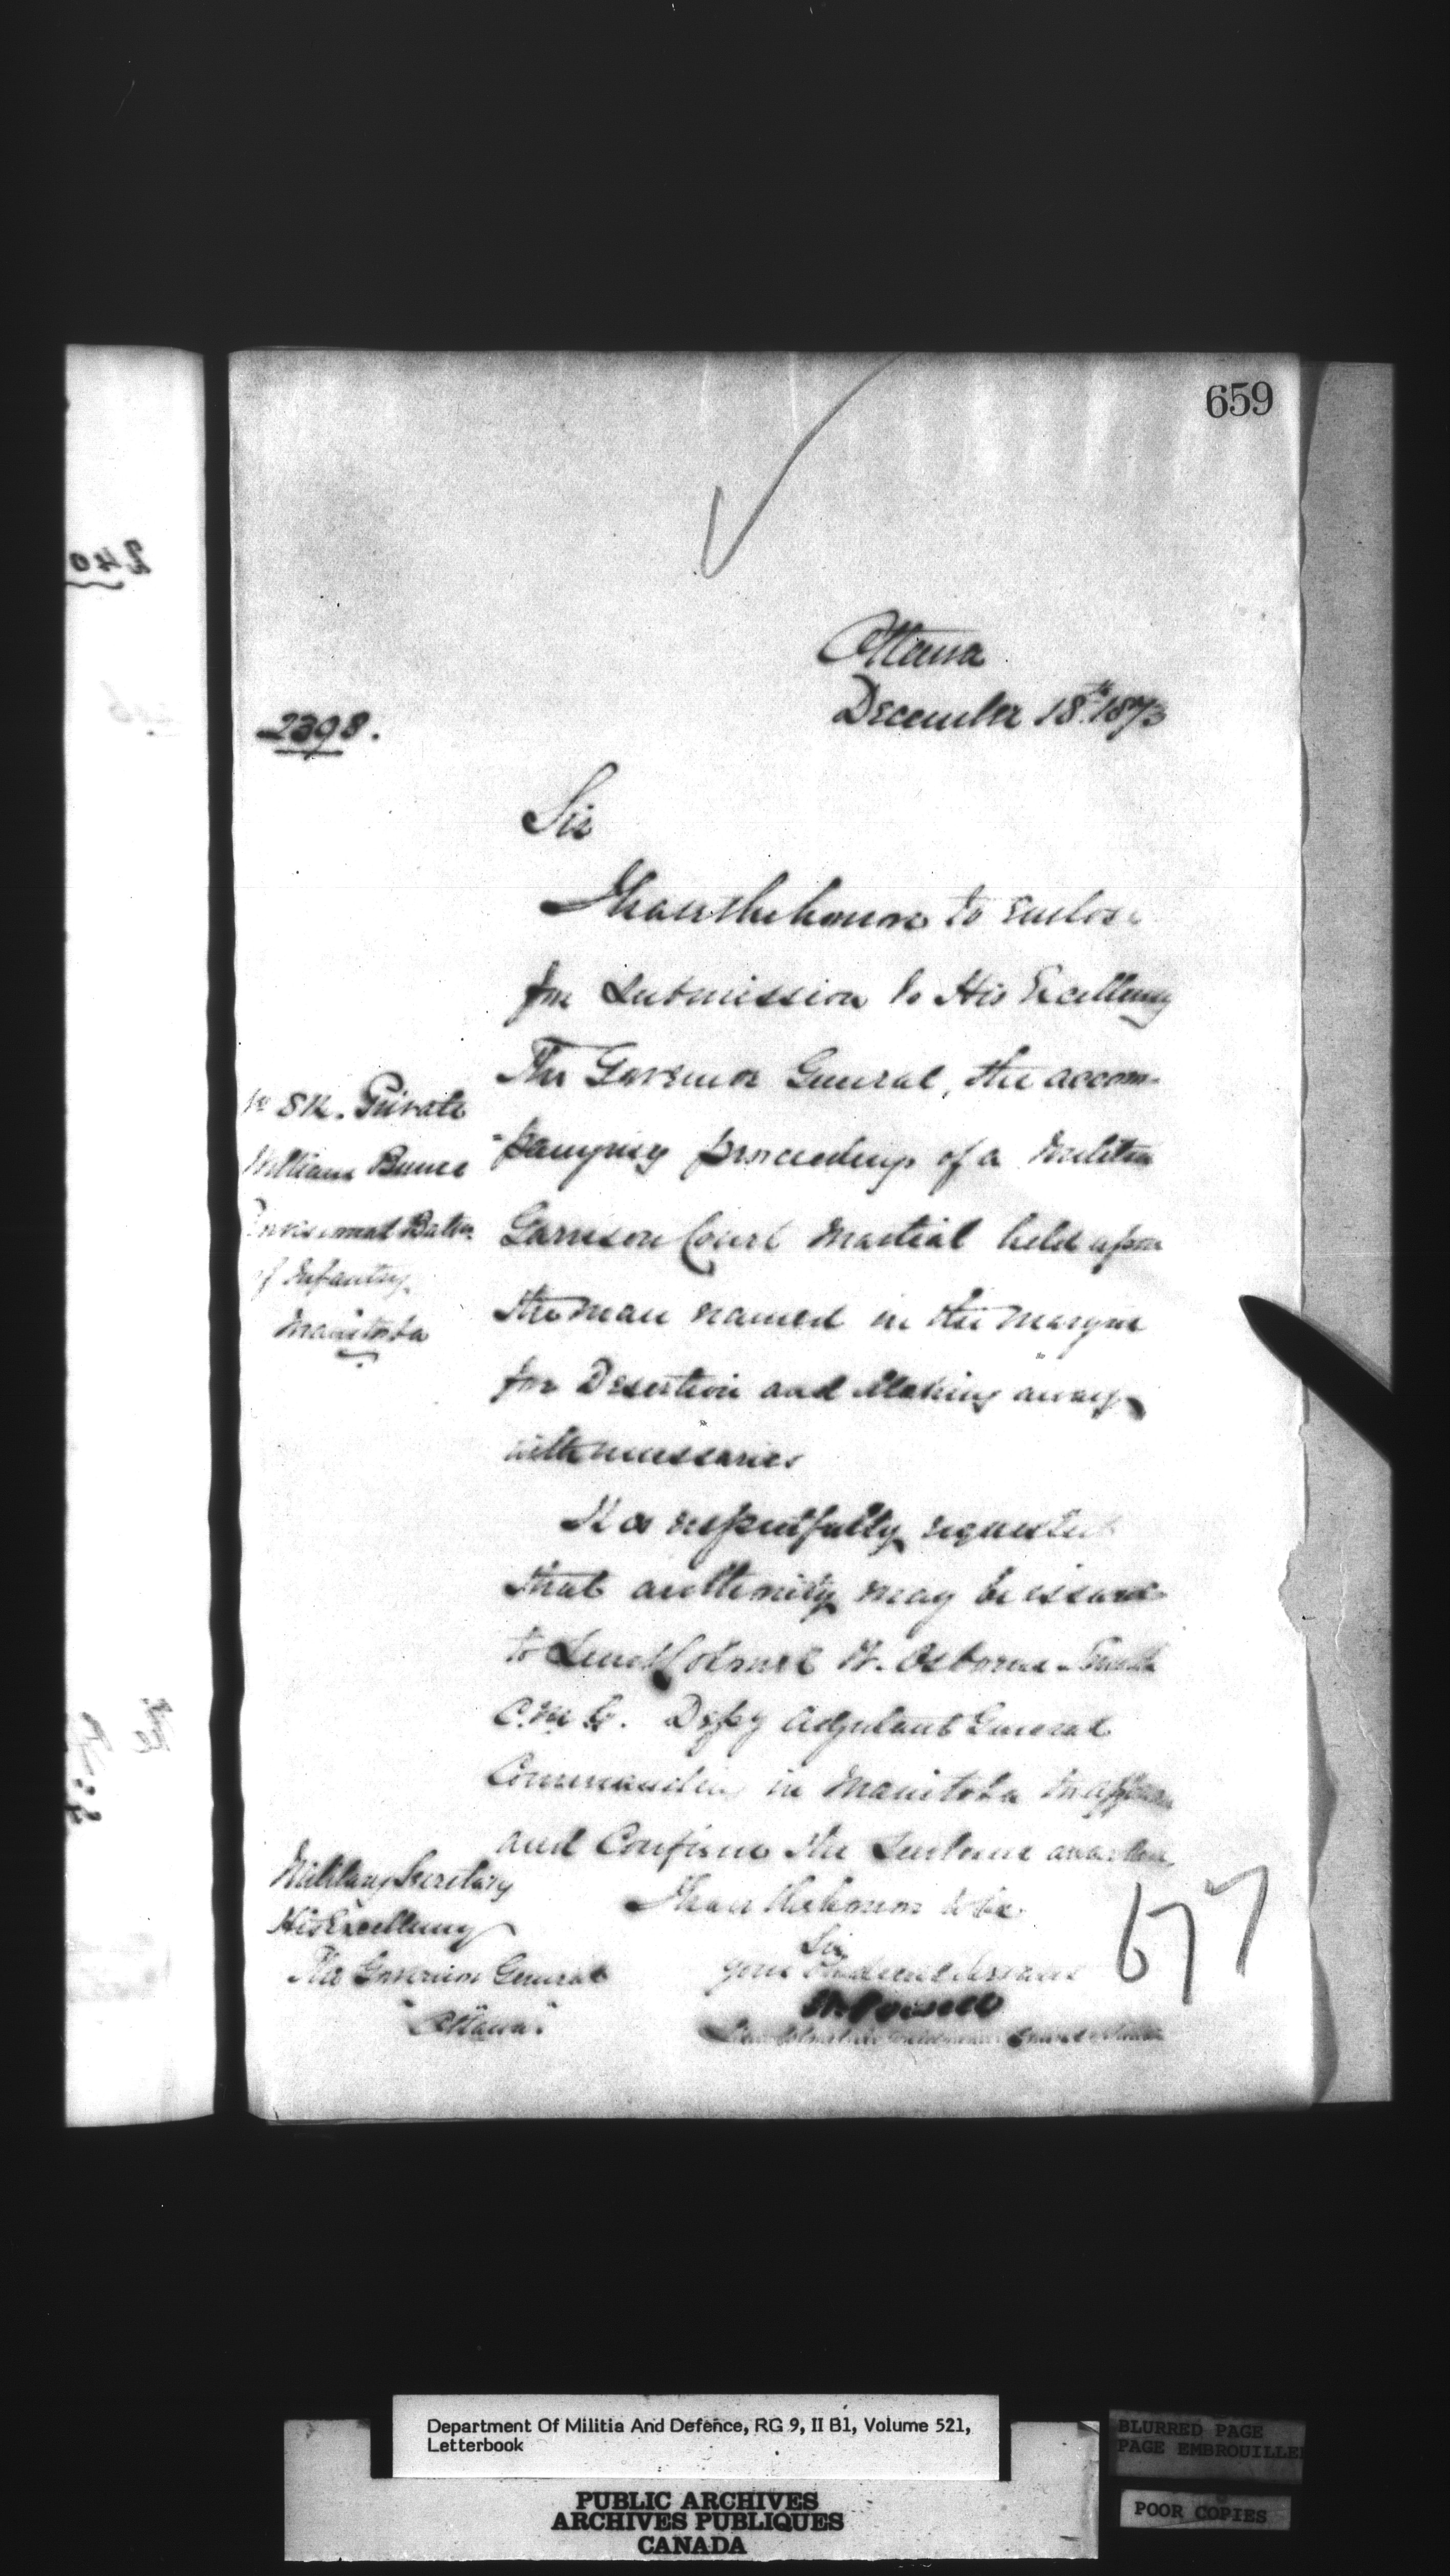 659
Ottawa
December 18th 1873
2398.
Sir
I have the honor to enclose
for submission to His Excellency
The Governor General, the accom-
-panying proceedings of a Militia
Garrison Court Martial held upon
the man named in the margin
for Desertion and Making away
with necessaries
No Private
William
Provisional Battn
of Infantry
Manitoba
It is respectfully requested
that authority may be issued
to Lieut Colonel W. Osborne Smith
C.M.G. Depy Adjutant General
Commanding in Manitoba to approve
and Confirm the Sentence awarded.
I have the honor to be
Sir
your Obedient Servant
Powell
Lieut Colonel
Military Secretary
His Excellency
The Governor General
Ottawa
677
240
Department Of Militia And Defence, RG 9, II B1, Volume 521,
Letterbook
PUBLIC ARCHIVES
ARCHIVES PUBLIQUES
CANADA
BLURRED PAGE
PAGE EMBROUILLE
POOR COPIES